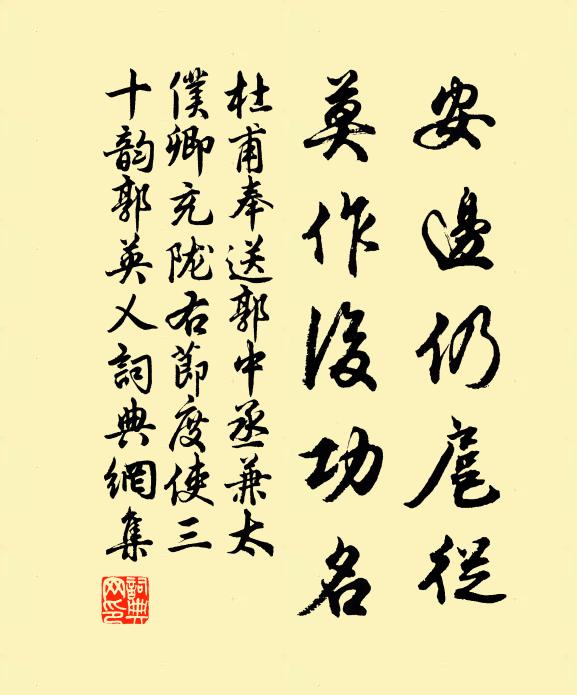 安邊仍扈從
莫作後功名
杜甫奉送郭中丞兼太
僕卿充陇右節度使三
十韵郭英乂詞典網集
詞典
网印